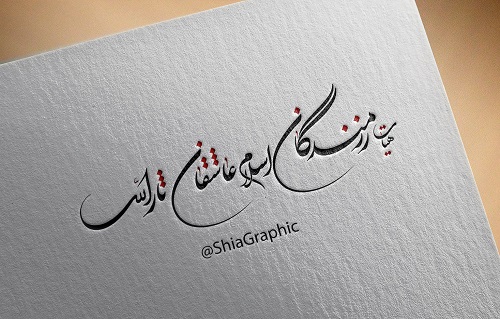 هیأت رزمندگان اسلام عاشقان ثارالله
@ShiaGraphic